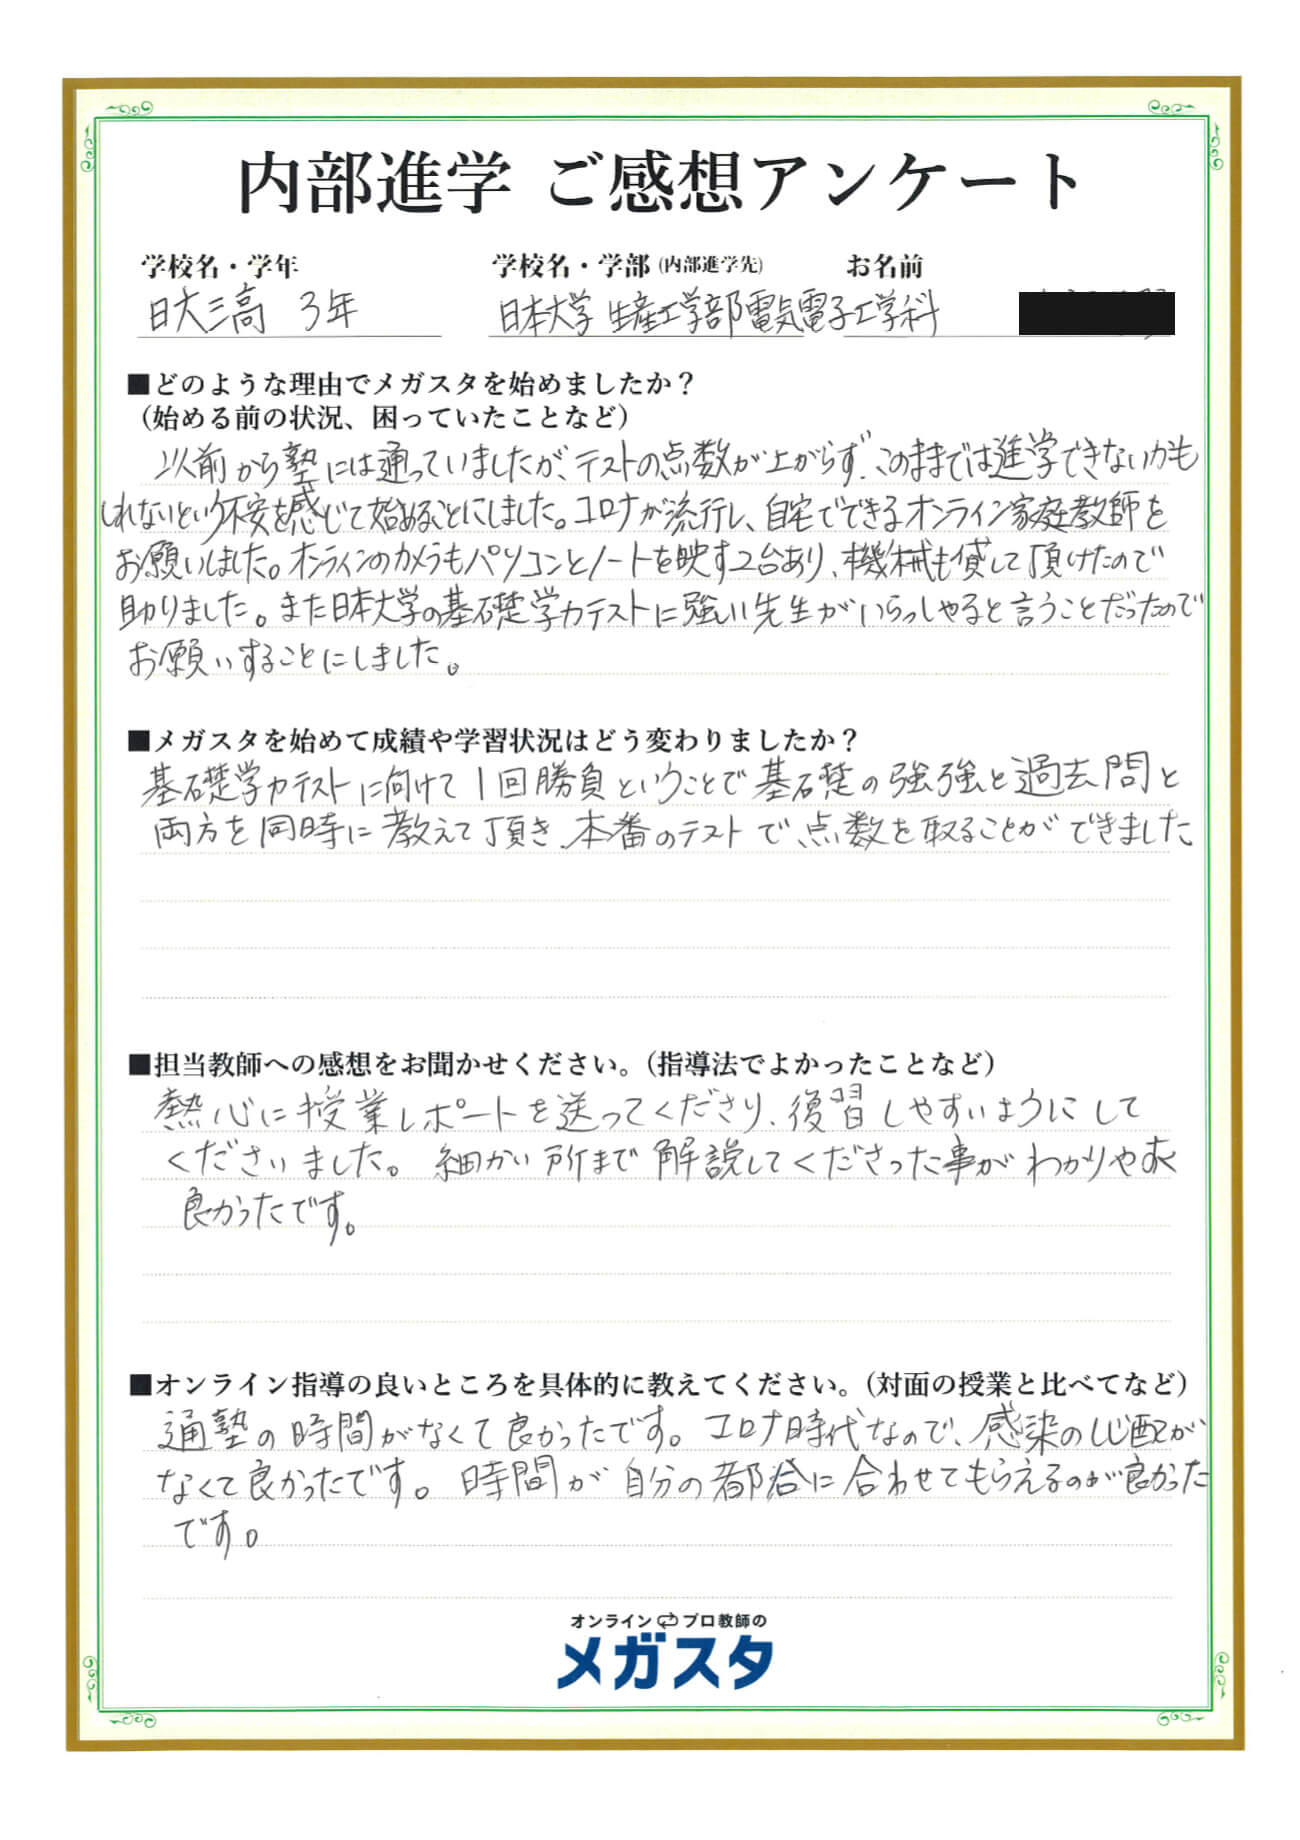 内部進学 ご感想アンケート
学校名・学年 学校名・学部 (内部進学先) お名前
日大三高 3年 日本大学 生産工学部電気電子工学科
■どのような理由でメガスタを始めましたか？
(始める前の状況、困っていたことなど)
以前から塾には通っていましたが、テストの点数が上がらず、このままでは進学できないかも
しれないという不安を感じて始めることにしました。コロナが流行し、自宅でできるオンライン家庭教師を
お願いしました。オンラインのカメラもパソコンとノートを映す2台あり、機械も貸して頂けたので
助かりました。また日本大学の基礎学力テストに強い先生がいらっしゃると言うことだったので
お願いすることにしました。
■メガスタを始めて成績や学習状況はどう変わりましたか？
基礎学力テストに向けて1回勝負ということで基礎の強強と過去問と
両方を同時に教えて頂き、本番のテストで、点数を取ることができました。
■担当教師への感想をお聞かせください。(指導法でよかったことなど)
熱心に授業レポートを送ってくださり、復習しやすいようにして
くださいました。細かい所まで解説してくださった事がわかりやすく
良かったです。
■オンライン指導の良いところを具体的に教えてください。(対面の授業と比べてなど)
通塾の時間がなくて良かったです。コロナ時代なので、感染の心配が
なくて良かったです。時間が自分の都合に合わせてもらえるのが良かった
です。
オンライン プロ教師の
メガスタ